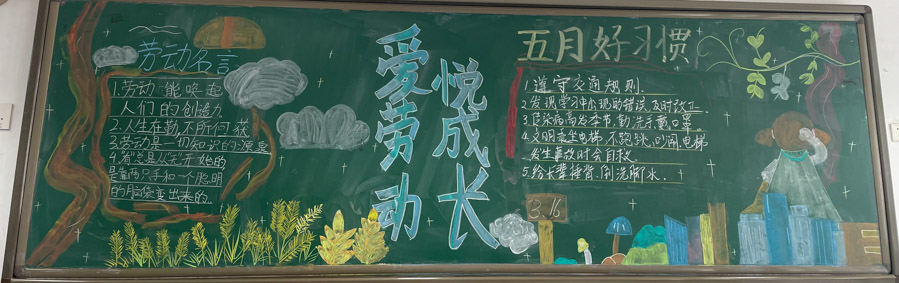 劳动名言
1.劳动能唤起
人们的创造力
2.人生在勤,不所何获
3.劳动是一切知识的源泉
是靠两只手和一个聪明
的脑袋变出来的
爱劳动
悦成长
五月好习惯
1.遵守交通规则.
2.发现学习中出现的错误,及时改正
3.传染病高发季节,勤洗手戴口罩
4.文明乘坐电梯,不跑跳,
发生事故时会自救.
5.给长辈捶背,倒洗脚水.
3.16